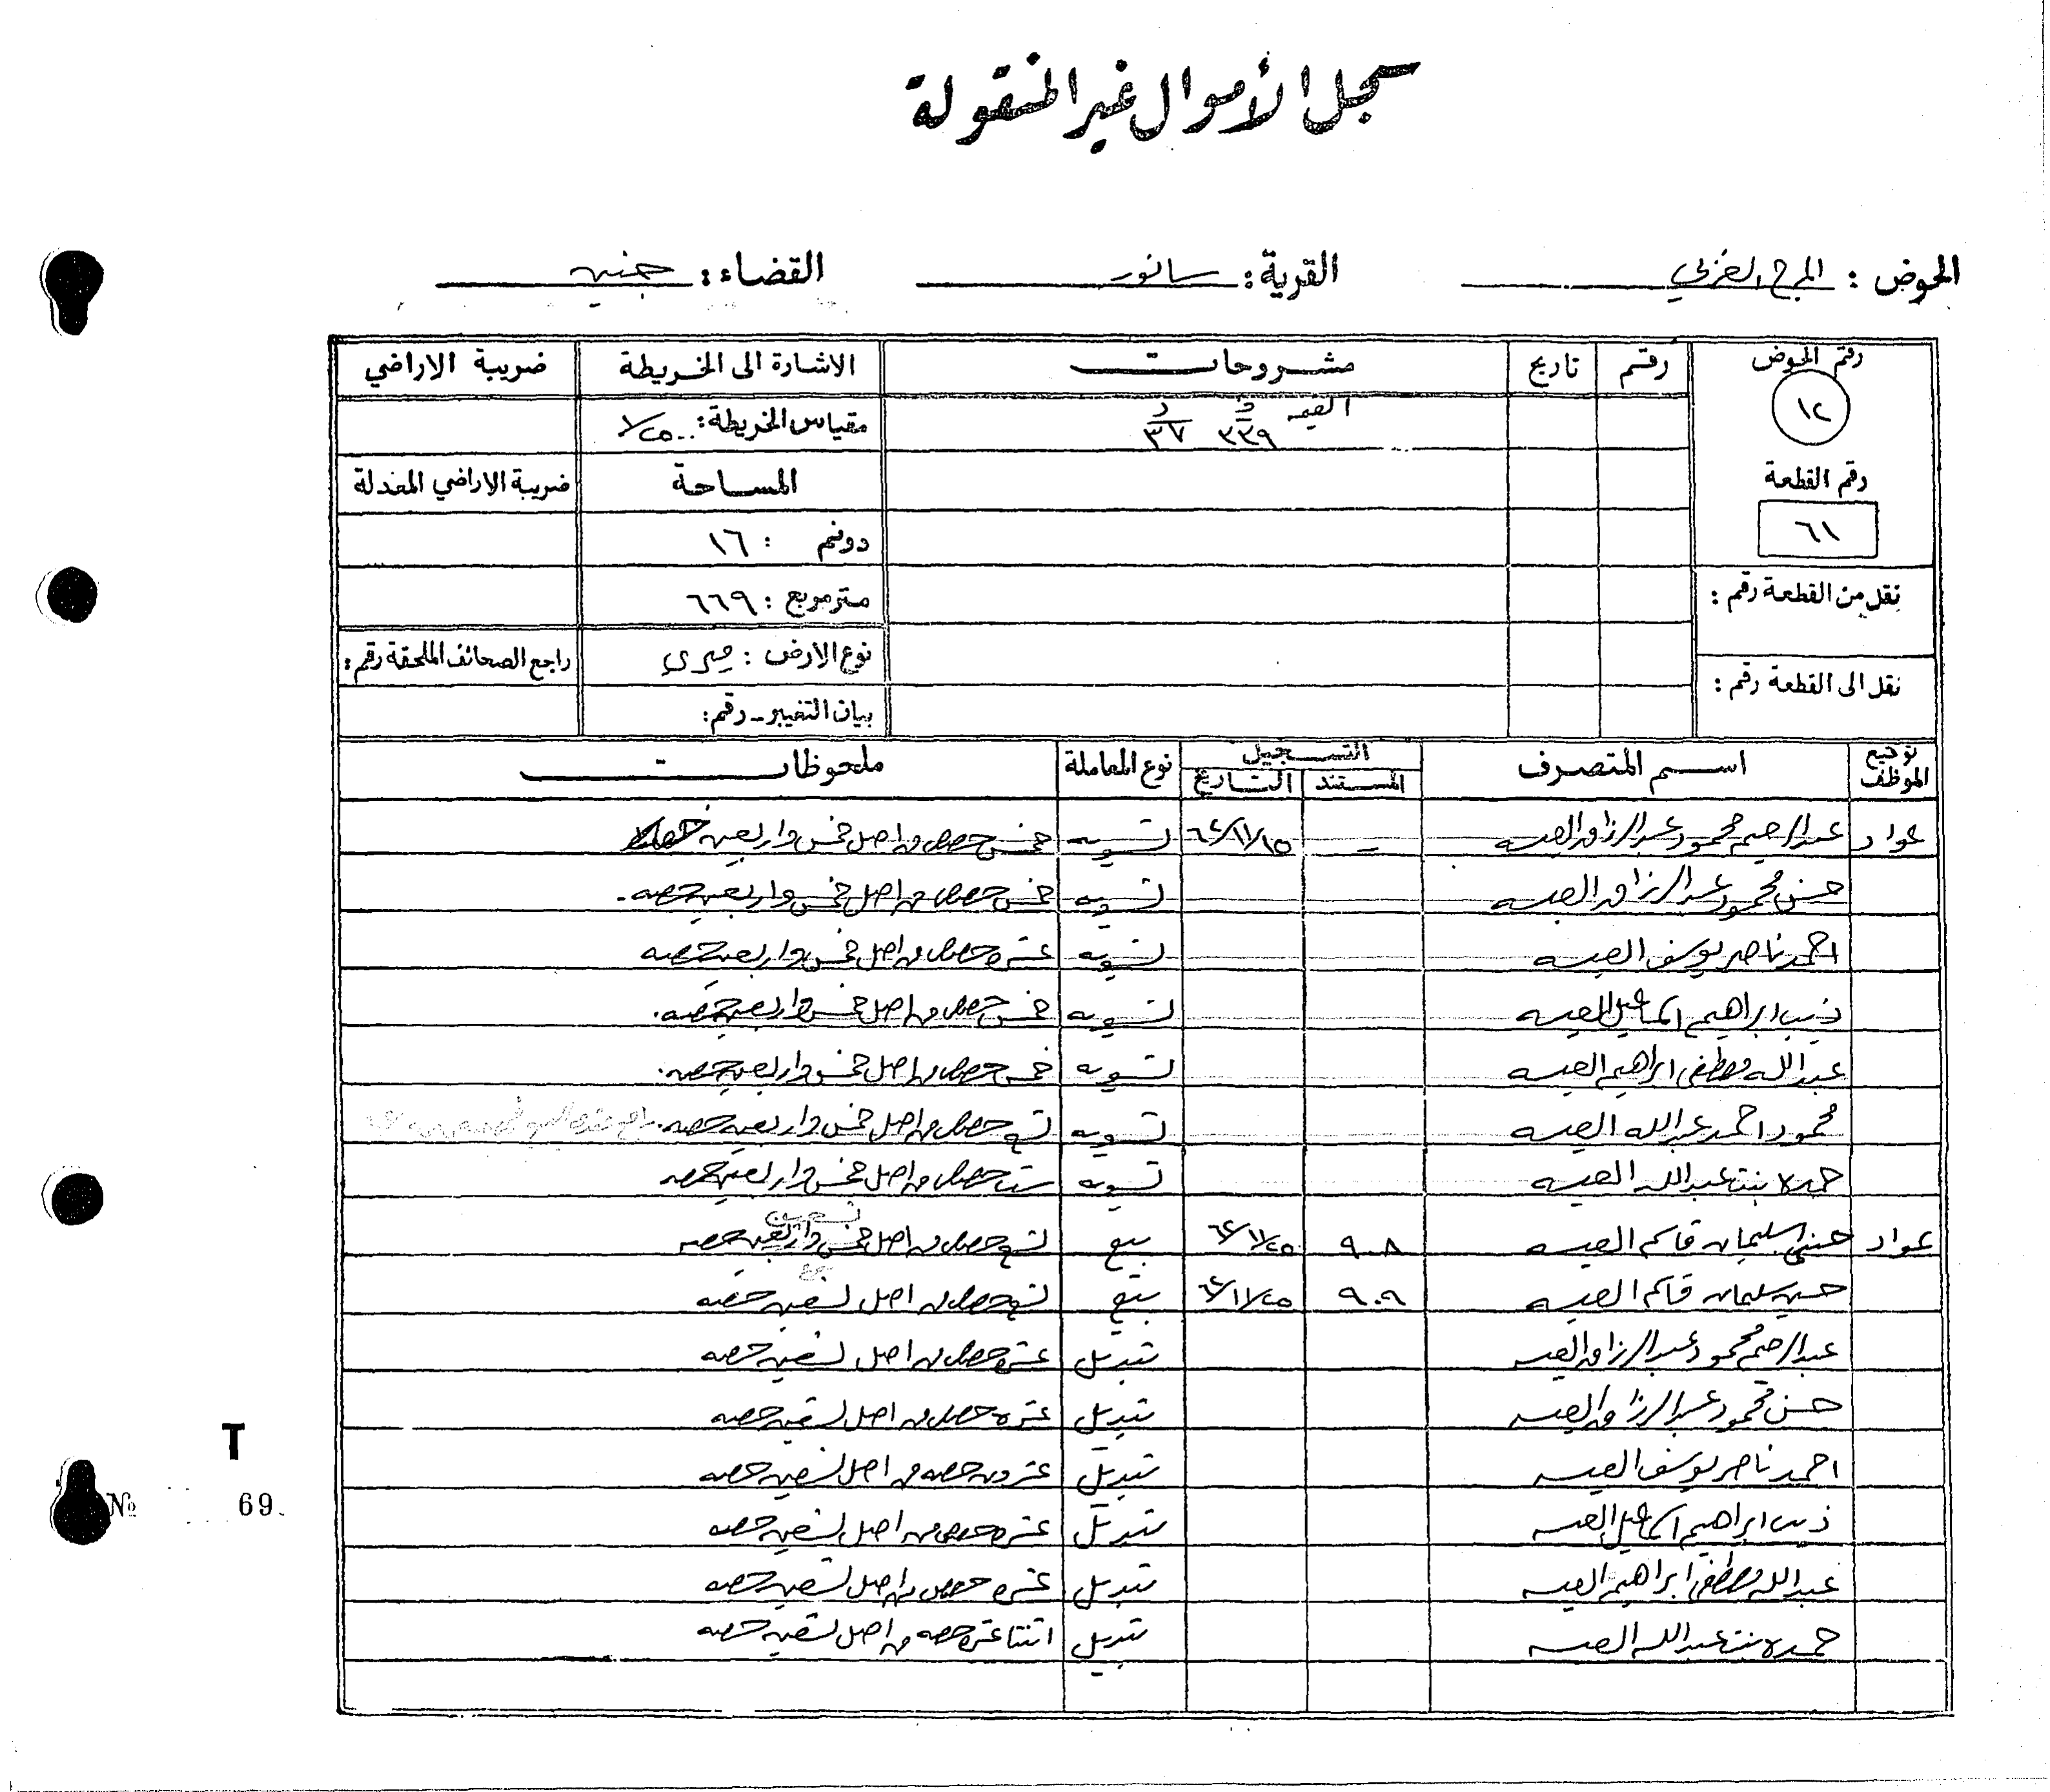 سجل الأموال غير المنقولة
الحوض : المرج الغربي القرية : سانور القضاء : جنين
رقم الحوض رقم تاريخ مشروحات الاشارة الى الخريطة ضريبة الاراضي
١٢ القيمه مقياس الخريطة :
د د
٣٣٩ ٣٧
رقم القطعة المساحة ضريبة الاراضي المعدلة
٦١ دونم : ١٦
نقل من القطعة رقم : متر مربع : ٦٦٩
نوع الارض : ميري راجع الصحائف الملحقة رقم :
نقل الى القطعة رقم : بيان التغيير - رقم :
توقيع الموظف اسم المتصرف التسجيل نوع المعاملة ملحوظات
المستند التاريخ
عواد عبد الرحيم محمود عبد الرزاق العيسه – ٦٤/١١/١٥ تسويه خمس حصص من اصل خمس واربعين حصه
حسن محمود عبد الرزاق العيسه تسويه خمس حصص من اصل خمس واربعين حصه .
احمد ناصر يوسف العيسه تسويه عشرة حصص من اصل خمس واربعين حصه
ذيب ابراهيم اسماعيل العيسه تسويه خمس حصص من اصل خمس واربعين حصه .
عبد الله مصطفى ابراهيم العيسه تسويه خمس حصص من اصل خمس واربعين حصه .
محمود احمد عبد الله العيسه تسويه تسع حصص من اصل خمس واربعين حصه .
حمده بنت عبد الله العيسه تسويه ست حصص من اصل خمس واربعين حصه
عواد حسني سليمان قاسم العيسه ٩٠٨ ٦٤/١١/٢٥ بيع تسع حصص من اصل خمس واربعين حصه
تسعين
حسين سليمان قاسم العيسه ٩٠٩ ٦٤/١١/٢٥ بيع تسع حصص من اصل تسعين حصه
عبد الرحيم محمود عبد الرزاق العيسه تبديل عشرة حصص من اصل تسعين حصه
حسن محمود عبد الرزاق العيسه تبديل عشرة حصص من اصل تسعين حصه
احمد ناصر يوسف العيسه تبديل عشرون حصه من اصل تسعين حصه
ذيب ابراهيم اسماعيل العيسه تبديل عشرة حصص من اصل تسعين حصه
عبد الله مصطفى ابراهيم العيسه تبديل عشرة حصص من اصل تسعين حصه
حمده بنت عبد الله العيسه تبديل اثنتا عشرة حصه من اصل تسعين حصه
T
№ 69